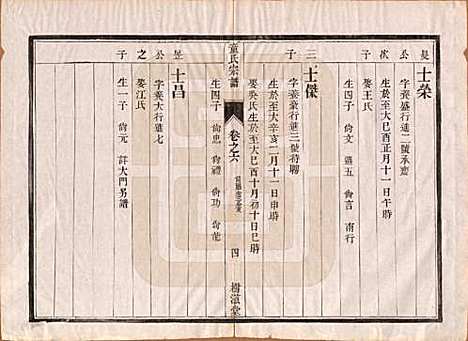 晟 士榮
公 字養盛行進二號承齋
次 生於至大己酉正月十一日午時
子 娶王氏
生四子 尙文 進五 尙言 南行
三 士傑
子 字養豪行進三號待聘
生於至大辛亥二月十一日申時
娶吳氏生於至大己酉十月初十日巳時
生四子 尙忠 尙禮 尙功 尙能
童氏宗譜 卷之六 四 樹滋堂
昱 士昌
公 字養大行進七
之 娶江氏
子 生一子 尙元 詳大門另譜